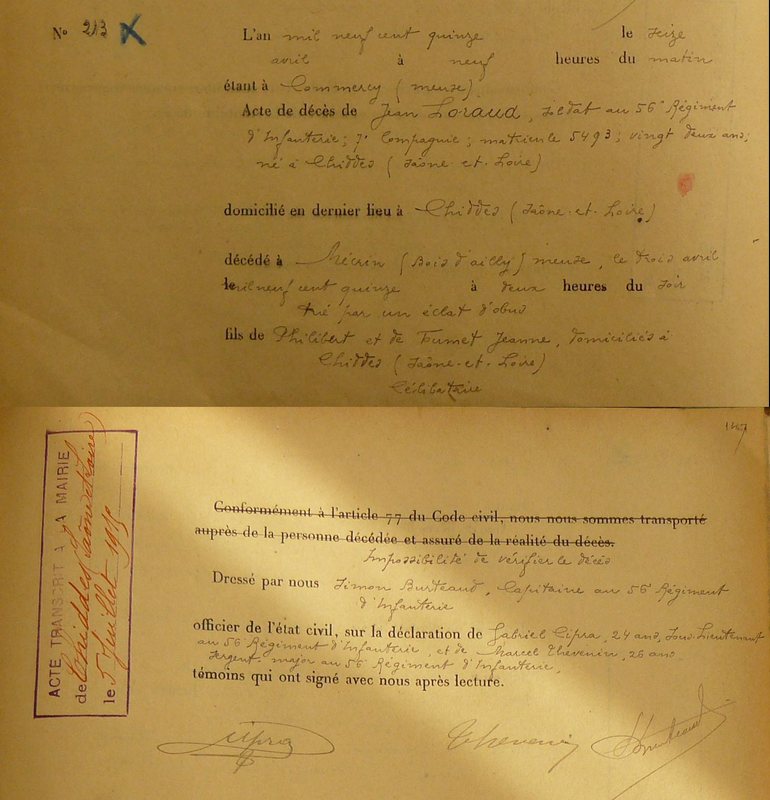 N° 213 X
L'an mil neuf cent quinze le seize
avril à neuf heures du matin
étant à Commercy (meuse)
Acte de décès de Jean Loraud, soldat au 56e Régiment
d'Infanterie; 7e Compagnie; matricule 5493; vingt deux ans;
né à Chiddes (Saône-et-Loire)
domicilié en dernier lieu à Chiddes (Saône-et-Loire)
décédé à Mécrin (Bois d'ailly) meuse, le trois avril
mil neuf cent quinze à deux heures du soir
tué par un éclat d'obus
fils de Philibert et de Fumet Jeanne, domiciliés à
Chiddes (Saône-et-Loire)
Célibataire
147
ACTE TRANSCRIT A LA MAIRIE
de Chiddes Saône et Loire
le 5 Juillet 1915
Conformément à l'article 77 du Code civil, nous nous sommes transporté
auprès de la personne décédée et assuré de la réalité du décès.
Impossibilité de vérifier le décès
Dressé par nous Simon Burteaud, Capitaine au 56e Régiment
d'Infanterie
officier de l'état civil, sur la déclaration de Gabriel Cipra, 24 ans, Sous-Lieutenant
au 56 Régiment d'Infanterie, et de Marcel Thevenin, 26 ans
Sergent major au 56 Régiment d'Infanterie,
témoins qui ont signé avec nous après lecture.
Cipra Thevenin